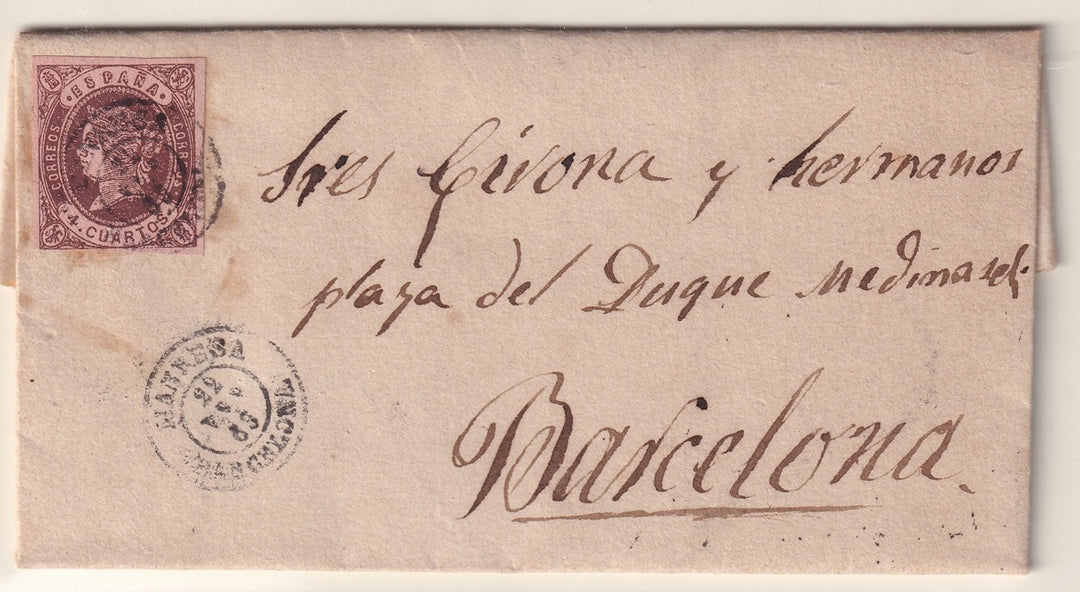 · ESPAÑA ·
CORREOS
CORREOS
· 4 · CUARTOS ·
Sres Girona y hermanos
plaza del Duque Medinaceli
MANRESA
22
63
BARCELONA
Barcelona.